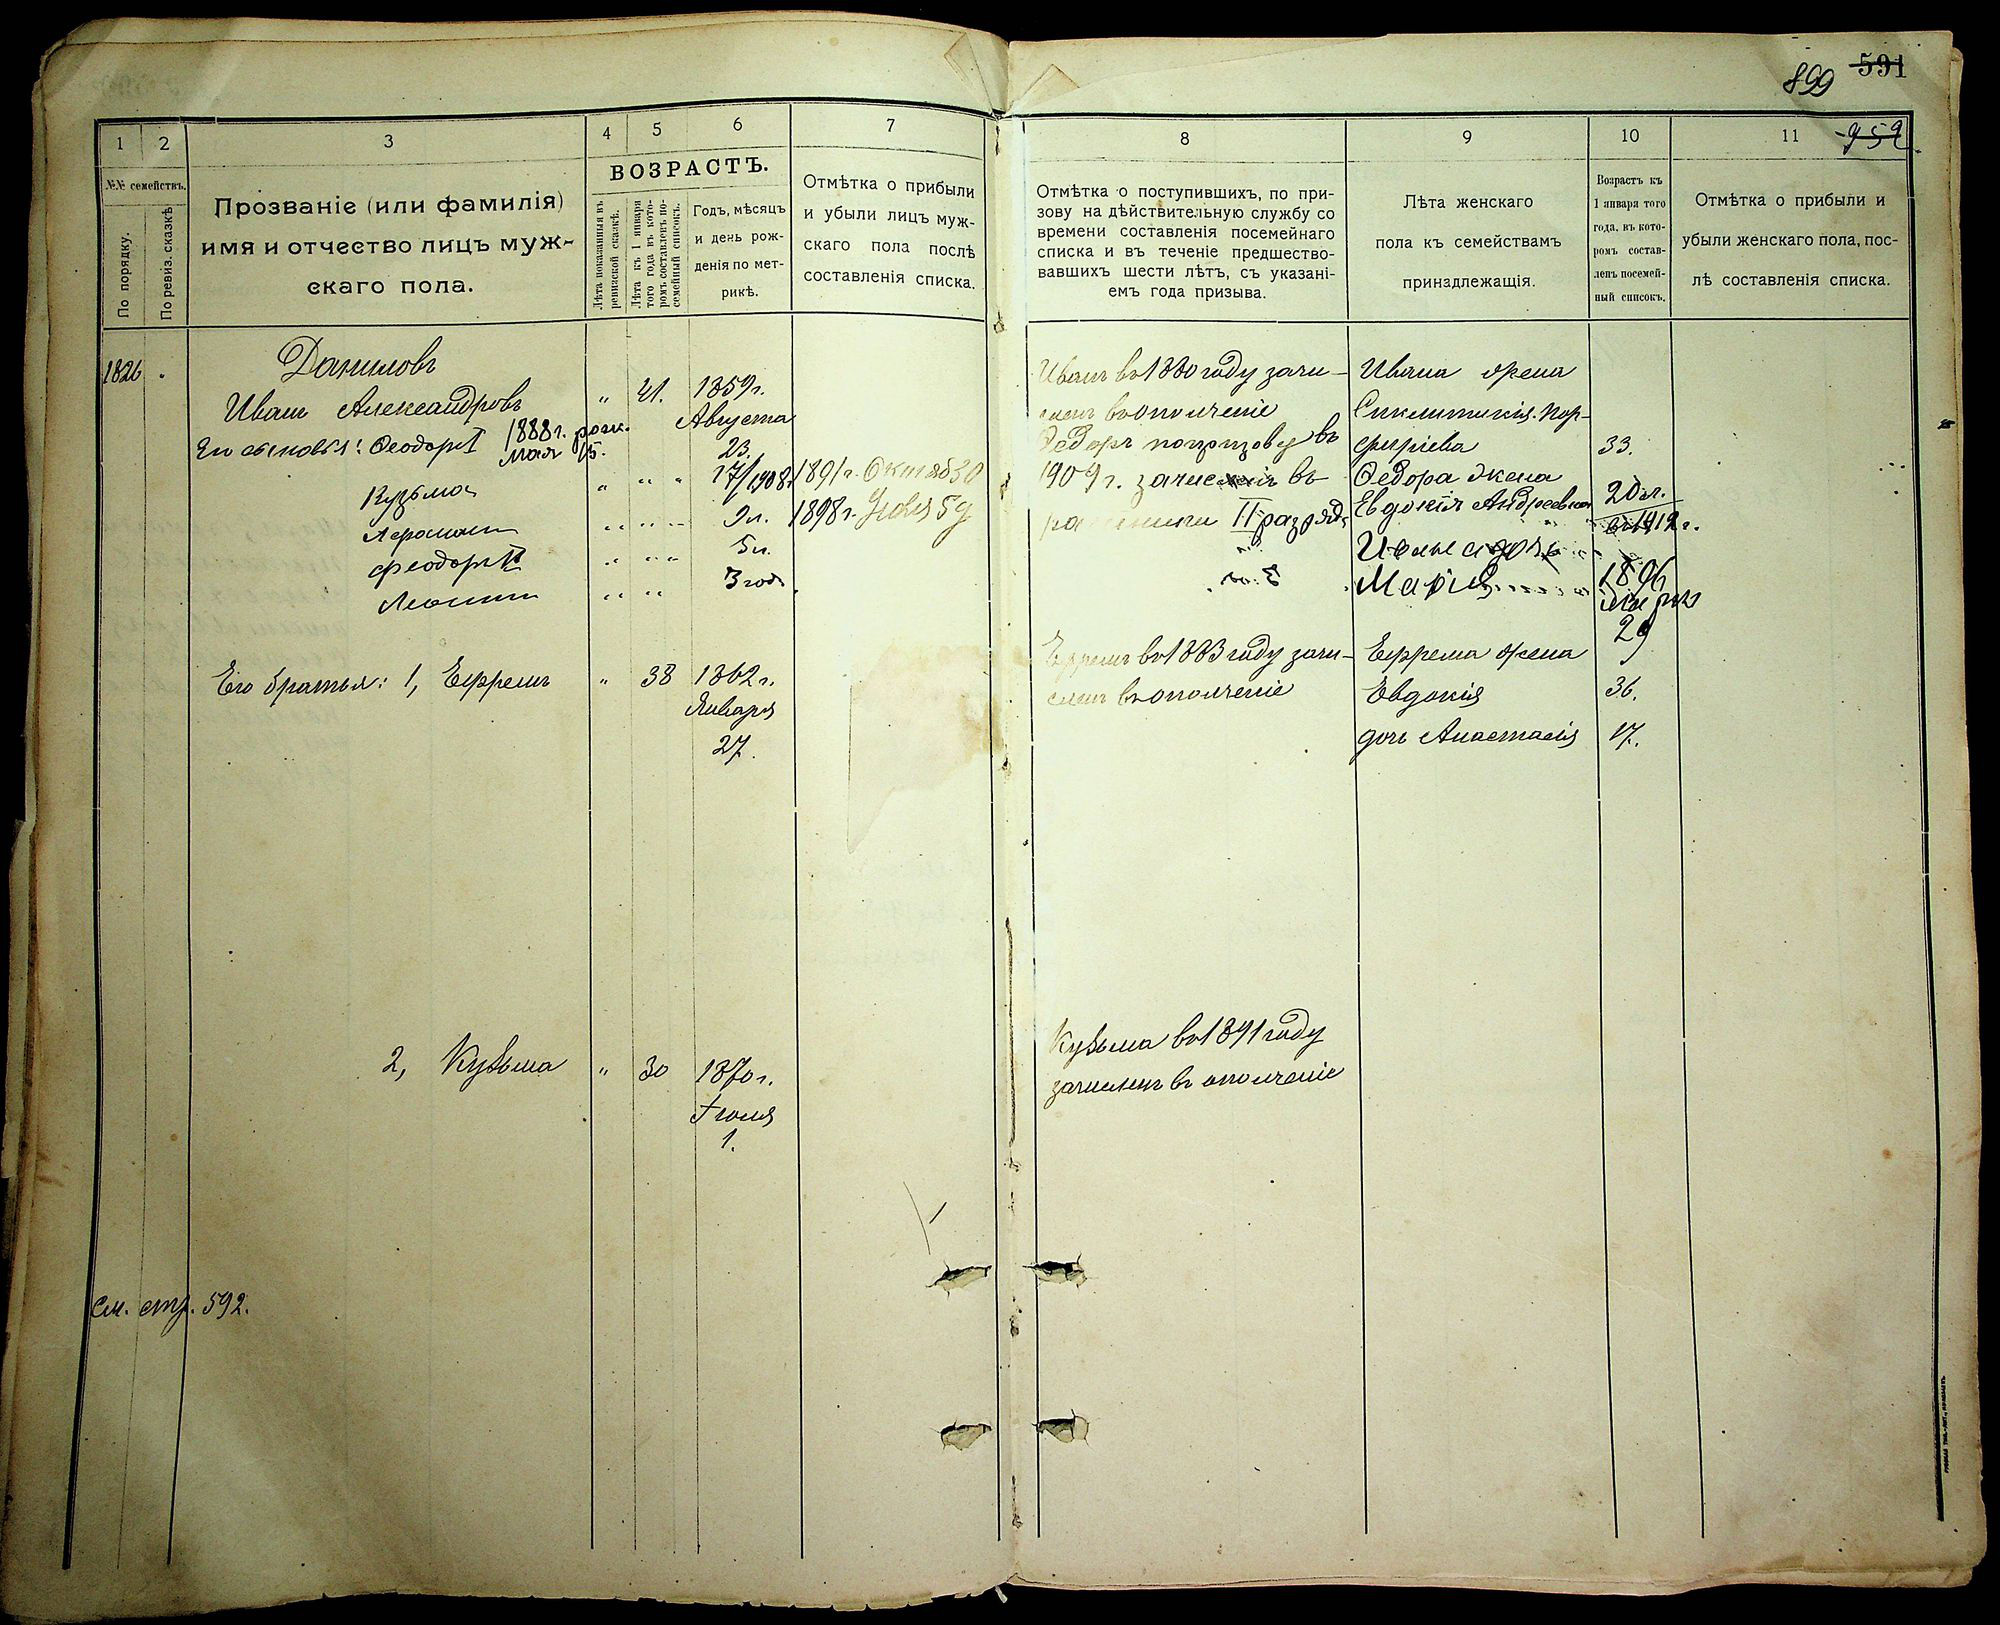 591
899
952
1 2 3 4 5 6 7
№№ семействъ.
По порядку.
По ревиз. сказкѣ
Прозваніе (или фамилія)
имя и отчество лицъ муж-
скаго пола.
ВОЗРАСТЪ.
Лѣта показанныя въ
ревизской сказкѣ.
Лѣта къ 1 января
того года въ кото-
ромъ составленъ по-
семейный списокъ.
Годъ, мѣсяцъ
и день рож-
денія по мет-
рикѣ.
Отмѣтка о прибыли
и убыли лицъ муж-
скаго пола послѣ
составленія списка.
1826
Даниловъ
Иванъ Александровъ " 41. 1859 г.
Августа
23.
Его сыновья: Феодоръ I 1888 г. рож.
мая 15.
Кузьма " " " " 17/1908 г. 1891 г. Октяб 30
" " " " 9 л. 1898 г.
Феодоръ II " " " 5 л.
Леонтій " " " 3 год.
Его братья: 1, Ефремъ " 38 1862 г.
Января
27.
2, Кузьма " 30 1870 г.
Іюля
1.
см. стр. 592.
8 9 10 11
Отмѣтка о поступившихъ, по при-
зову на дѣйствительную службу со
времени составленія посемейнаго
списка и въ теченіе предшество-
вавшихъ шести лѣтъ, съ указані-
емъ года призыва.
Лѣта женскаго
пола къ семействамъ
принадлежащія.
Возрастъ къ
1 января того
года, въ кото-
ромъ состав-
ленъ посемей-
ный списокъ.
Отмѣтка о прибыли и
убыли женскаго пола, пос-
лѣ составленія списка.
Иванъ въ 1880 году зачи-
сленъ въ ополченіе
Федоръ по призову въ
1909 г. зачисленъ въ
ратники II разряда
Ивана жена
Синклитикія Пор-
фиріева 33.
Федора жена
Евдокія Андреевна 20 л.
въ 1912 г.
Ивана дочь
Марія 1896
Марта
29
Ефремъ въ 1883 году зачи-
сленъ въ ополченіе
Ефрема жена
Евдокія 36.
дочь Анастасія 17.
Кузьма въ 1891 году
зачисленъ въ ополченіе